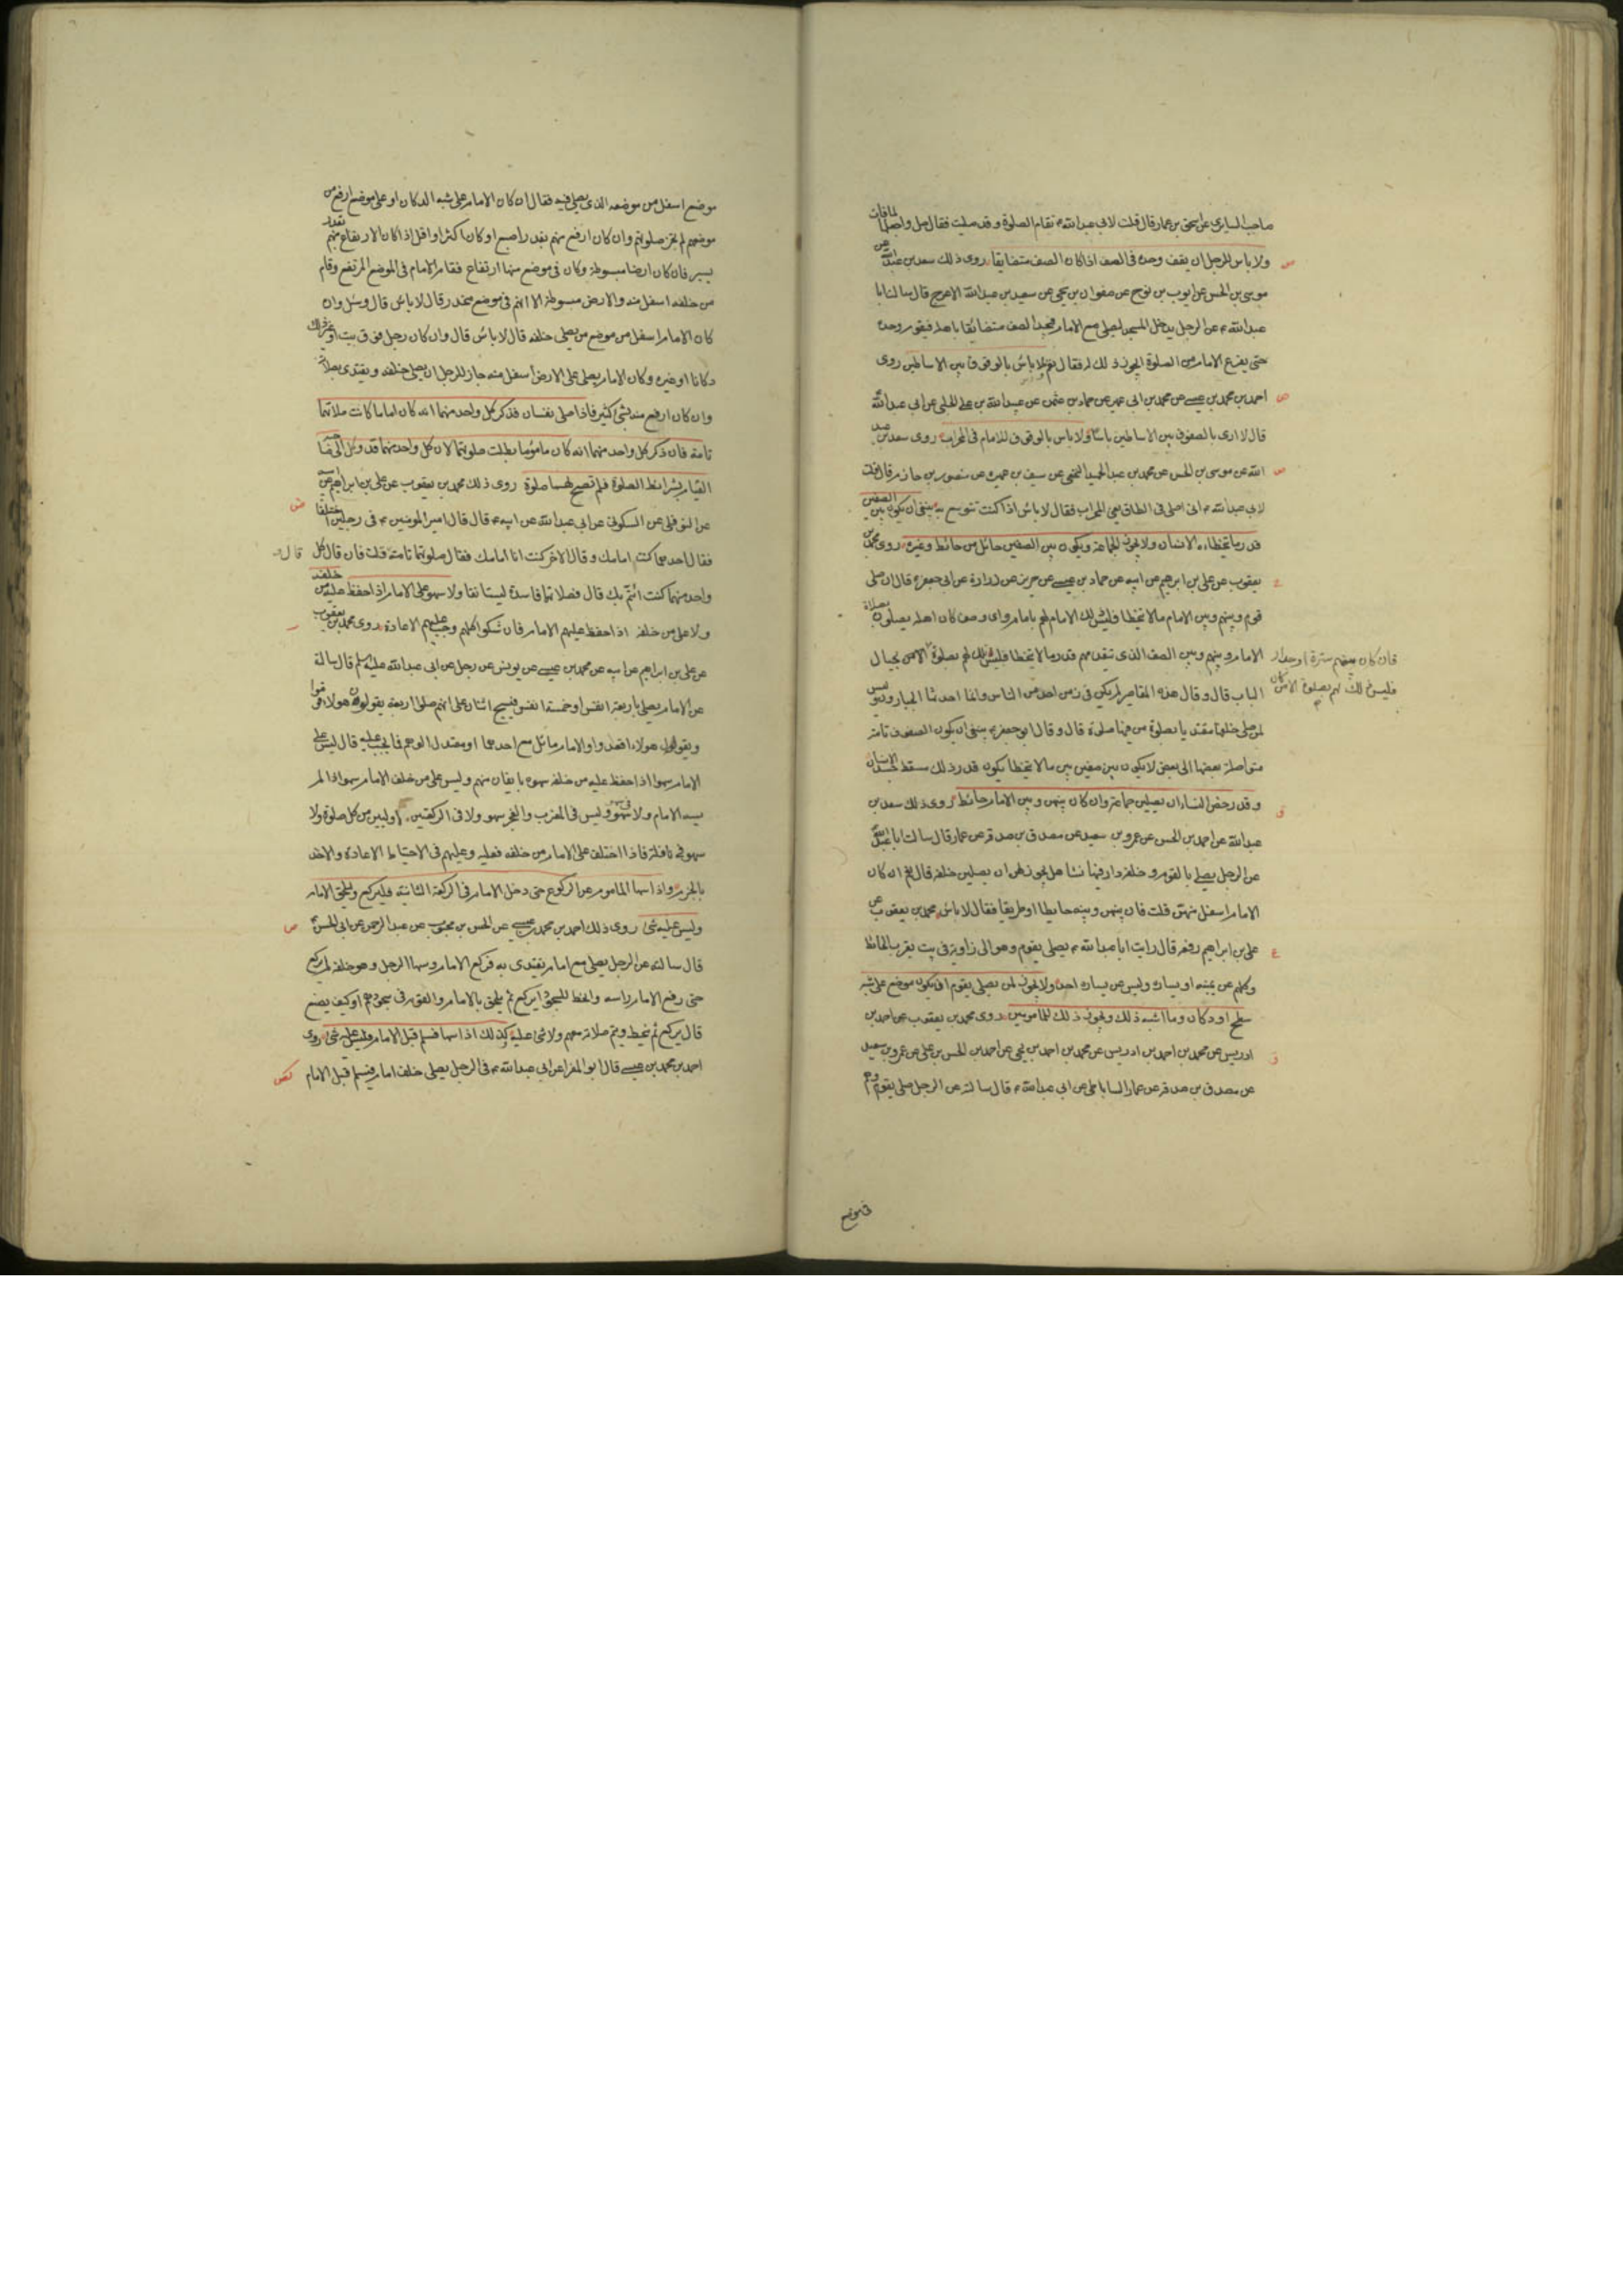 صاحب السابري عن اسحق بن عمار قال قلت لابي عبد الله ع تقام الصلوة وقد صليت فقال صل واجعلها لما فات
ولا باس للرجل ان يقف وحده فى الصف اذا كان الصف متضايقا روى ذلك سعد بن عبد الله عن
موسى بن الحسن عن ايوب بن نوح عن صفوان بن يحيى عن سعيد بن عبد الله الاعرج قال سالت ابا
عبد الله ع عن الرجل يدخل المسجد ليصلى مع الامام فيجد الصف متضايقا باهله فيقوم وحده
حتى يفرغ الامام من الصلوة ايجوز ذلك له فقال نعم لا باس بالوقوف بين الاساطين روى
احمد بن محمد بن عيسى عن محمد بن ابى عمير عن حماد بن عثمن عن عبيد الله بن على الحلبى عن ابى عبد الله
قال لا ارى بالصفوف بين الاساطين باسا ولا باس بالوقوف للامام فى المحراب روى سعد بن عبد
الله عن موسى بن الحسن عن محمد بن عبد الحميد عن سيف بن عميره عن منصور بن حازم قال قلت
لابى عبد الله ع انى اصلى فى الطاق يعنى المحراب فقال لا باس اذا كنت تتوسع به ينبغى ان يكون بين الصفين
قدر ما يتخطاه الانسان ولا يجوز الجماعة ويكون بين الصفين حائل من حائط وغيره روى محمد بن
يعقوب عن على بن ابرهيم عن ابيه عن حماد بن عيسى عن حريز عن زرارة عن ابى جعفر ع قال ان صلى
قوم وبينهم وبين الامام ما لا يتخطا فليس ذلك الامام لهم بامام واى صف كان اهله يصلون بصلاة
الامام وبينهم وبين الصف الذى يتقدمهم قدر ما لا يتخطا فليس تلك لهم بصلوة الا من بحيال
فان كان بينهم سترة او جدار
فليس ذلك لهم بصلوة الا من كان
الباب قال وقال هذه المقاصير لم يكن فى زمن احد من الناس وانما احدثها الجبارون وليس
لمن صلى خلفها مقتديا بصلوة من فيها صلوة قال وقال ابو جعفر ع ينبغى ان يكون الصفوف تامة
متواصلة بعضها الى بعض لا يكون بين صفين ما لا يتخطا يكون قدر ذلك مسقط جسد الانسان
وقد رخص للنساء ان يصلين جماعة وان كان بينهن وبين الامام حائط روى ذلك سعد بن
عبد الله عن احمد بن الحسن عن عمرو بن سعيد عن مصدق بن صدقة عن عمار قال سالت ابا عبد الله
عن الرجل يصلى بالقوم وخلفه دار فيها نساء هل يجوز لهن ان يصلين خلفه قال نعم ان كان
الامام اسفل منهن قلت فان بينهن وبينه حايطا او طريقا فقال لا باس محمد بن يعقوب عن
على بن ابراهيم رفعه قال رايت ابا عبد الله ع يصلى بقوم وهو الى زاوية فى بيت يقرب الحائط
وكلهم عن يمينه او يساره وليس عن يساره احد ولا يجوز لمن يصلى بقوم ان يكون موضع على شبه
سطح او دكان وما اشبه ذلك ويجوز ذلك للمامومين روى محمد بن يعقوب عن احمد بن
ادريس عن محمد بن احمد بن ادريس عن محمد بن احمد بن يحى عن احمد بن الحسن بن على عن عمرو بن سعيد
عن مصدق بن صدقة عن عمار الساباطى عن ابى عبد الله ع قال سالته عن الرجل صلى بقوم وهم
فى موضع
موضع اسفل من موضعه الذى يصلى فيه فقال ان كان الامام على شبه الدكان او على موضع ارفع من
موضعهم لم تجز صلوتهم وان كان ارفع منهم بقدر اصبع او كان اكثر او اقل اذا كان الارتفاع منهم بقدر
يسير فان كان ارضا مبسوطة وكان فى موضع منها ارتفاع فقام الامام فى الموضع المرتفع وقام
من خلفه اسفل منه والارض مبسوطة الا انهم فى موضع منحدر قال لا باس قال وسئل وان
كان الامام اسفل من موضع من يصلى خلفه قال لا باس قال وان كان رجل فوق بيت او غير ذلك
دكانا او غيره وكان الامام يصلى على الارض اسفل منه جاز للرجل ان يصلى خلفه ويقتدى بصلاته
وان كان ارفع منه بشئ كثير فاذا صلى نفسان فذكر كل واحد منهما انه كان اماما كانت صلاتهما
تامة فان ذكر كل واحد منهما انه كان ماموما بطلت صلوتهما لان كل واحد منهما قد وكل الى صاحبه
القيام بشرائط الصلوة فلم تصح لهما صلوة روى ذلك محمد بن يعقوب عن على بن ابراهيم عن ابيه
عن النوفلى عن السكونى عن ابى عبد الله عن ابيه ع قال قال امير المومنين ع فى رجلين اختلفا
فقال احدهما كنت امامك وقال الاخر كنت انا امامك فقال صلوتهما تامة قلت فان قال كل
واحد منهما كنت ائتم بك قال فصلاتهما فاسدة ليستانفا ولا سهو على الامام اذا حفظ عليه من خلفه
ولا على من خلفه اذا حفظ عليهم الامام فان شكوا كلهم وجب عليهم الاعادة روى محمد بن يعقوب
عن على بن ابراهيم عن ابيه عن محمد بن عيسى عن يونس عن رجل عن ابى عبد الله عليه السلم قال سالته
عن الامام يصلى باربعة انفس او خمسة انفس فيسبح اثنان على انهم صلوا اربعة يقولون هولاء قوموا
ويقول هولاء اقعدوا والامام مائل مع احدهما او معتدل الوهم فما يجب عليه قال ليس على
الامام سهو اذا حفظ عليه من خلفه سهوه بايقان منهم وليس على من خلف الامام سهو اذا لم
يسه الامام ولا سهو فى سهو وليس فى المغرب والفجر سهو ولا فى الركعتين الاوليين من كل صلوة ولا
سهو فى نافلة فاذا اختلف على الامام من خلفه فعليه وعليهم فى الاحتياط الاعادة والاخذ
بالجزم واذا سها الماموم عن الركوع حتى دخل الامام فى الركعة الثانية فليركع وليلحق الامام
وليس عليه شئ روى ذلك احمد بن محمد بن عيسى عن الحسن بن محبوب عن عبد الرحمن عن ابى الحسن ع
قال سالته عن الرجل يصلى مع امام يقتدى به فركع الامام وسها الرجل وهو خلفه لم يركع
حتى رفع الامام راسه وانحط للسجود ايركع ثم يلحق بالامام والقوم فى سجودهم او كيف يصنع
قال يركع ثم ينحط ويتم صلاته معهم ولا شئ عليه وكذلك اذا سها فسلم قبل الامام فليس عليه شئ روى
احمد بن محمد بن عيسى قال ابو المغرا عن ابى عبد الله ع فى الرجل يصلى خلف امام فيسلم قبل الامام